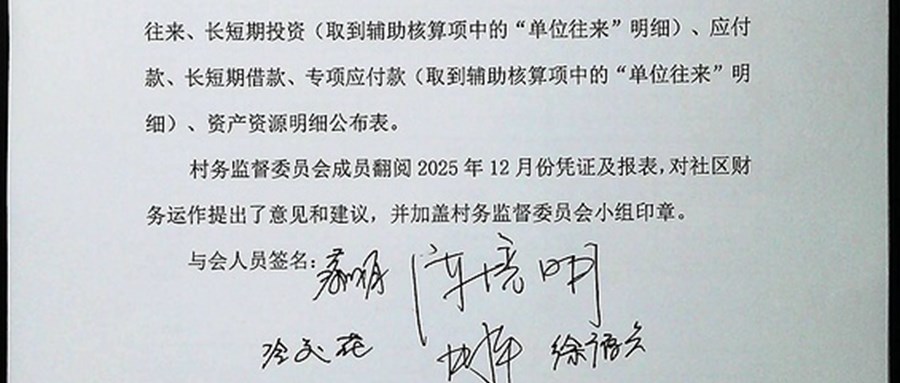 往来、长短期投资（取到辅助核算项中的“单位往来”明细）、应付
款、长短期借款、专项应付款（取到辅助核算项中的“单位往来”明
细）、资产资源明细公布表。
村务监督委员会成员翻阅 2025 年 12 月份凭证及报表，对社区财
务运作提出了意见和建议，并加盖村务监督委员会小组印章。
与会人员签名：